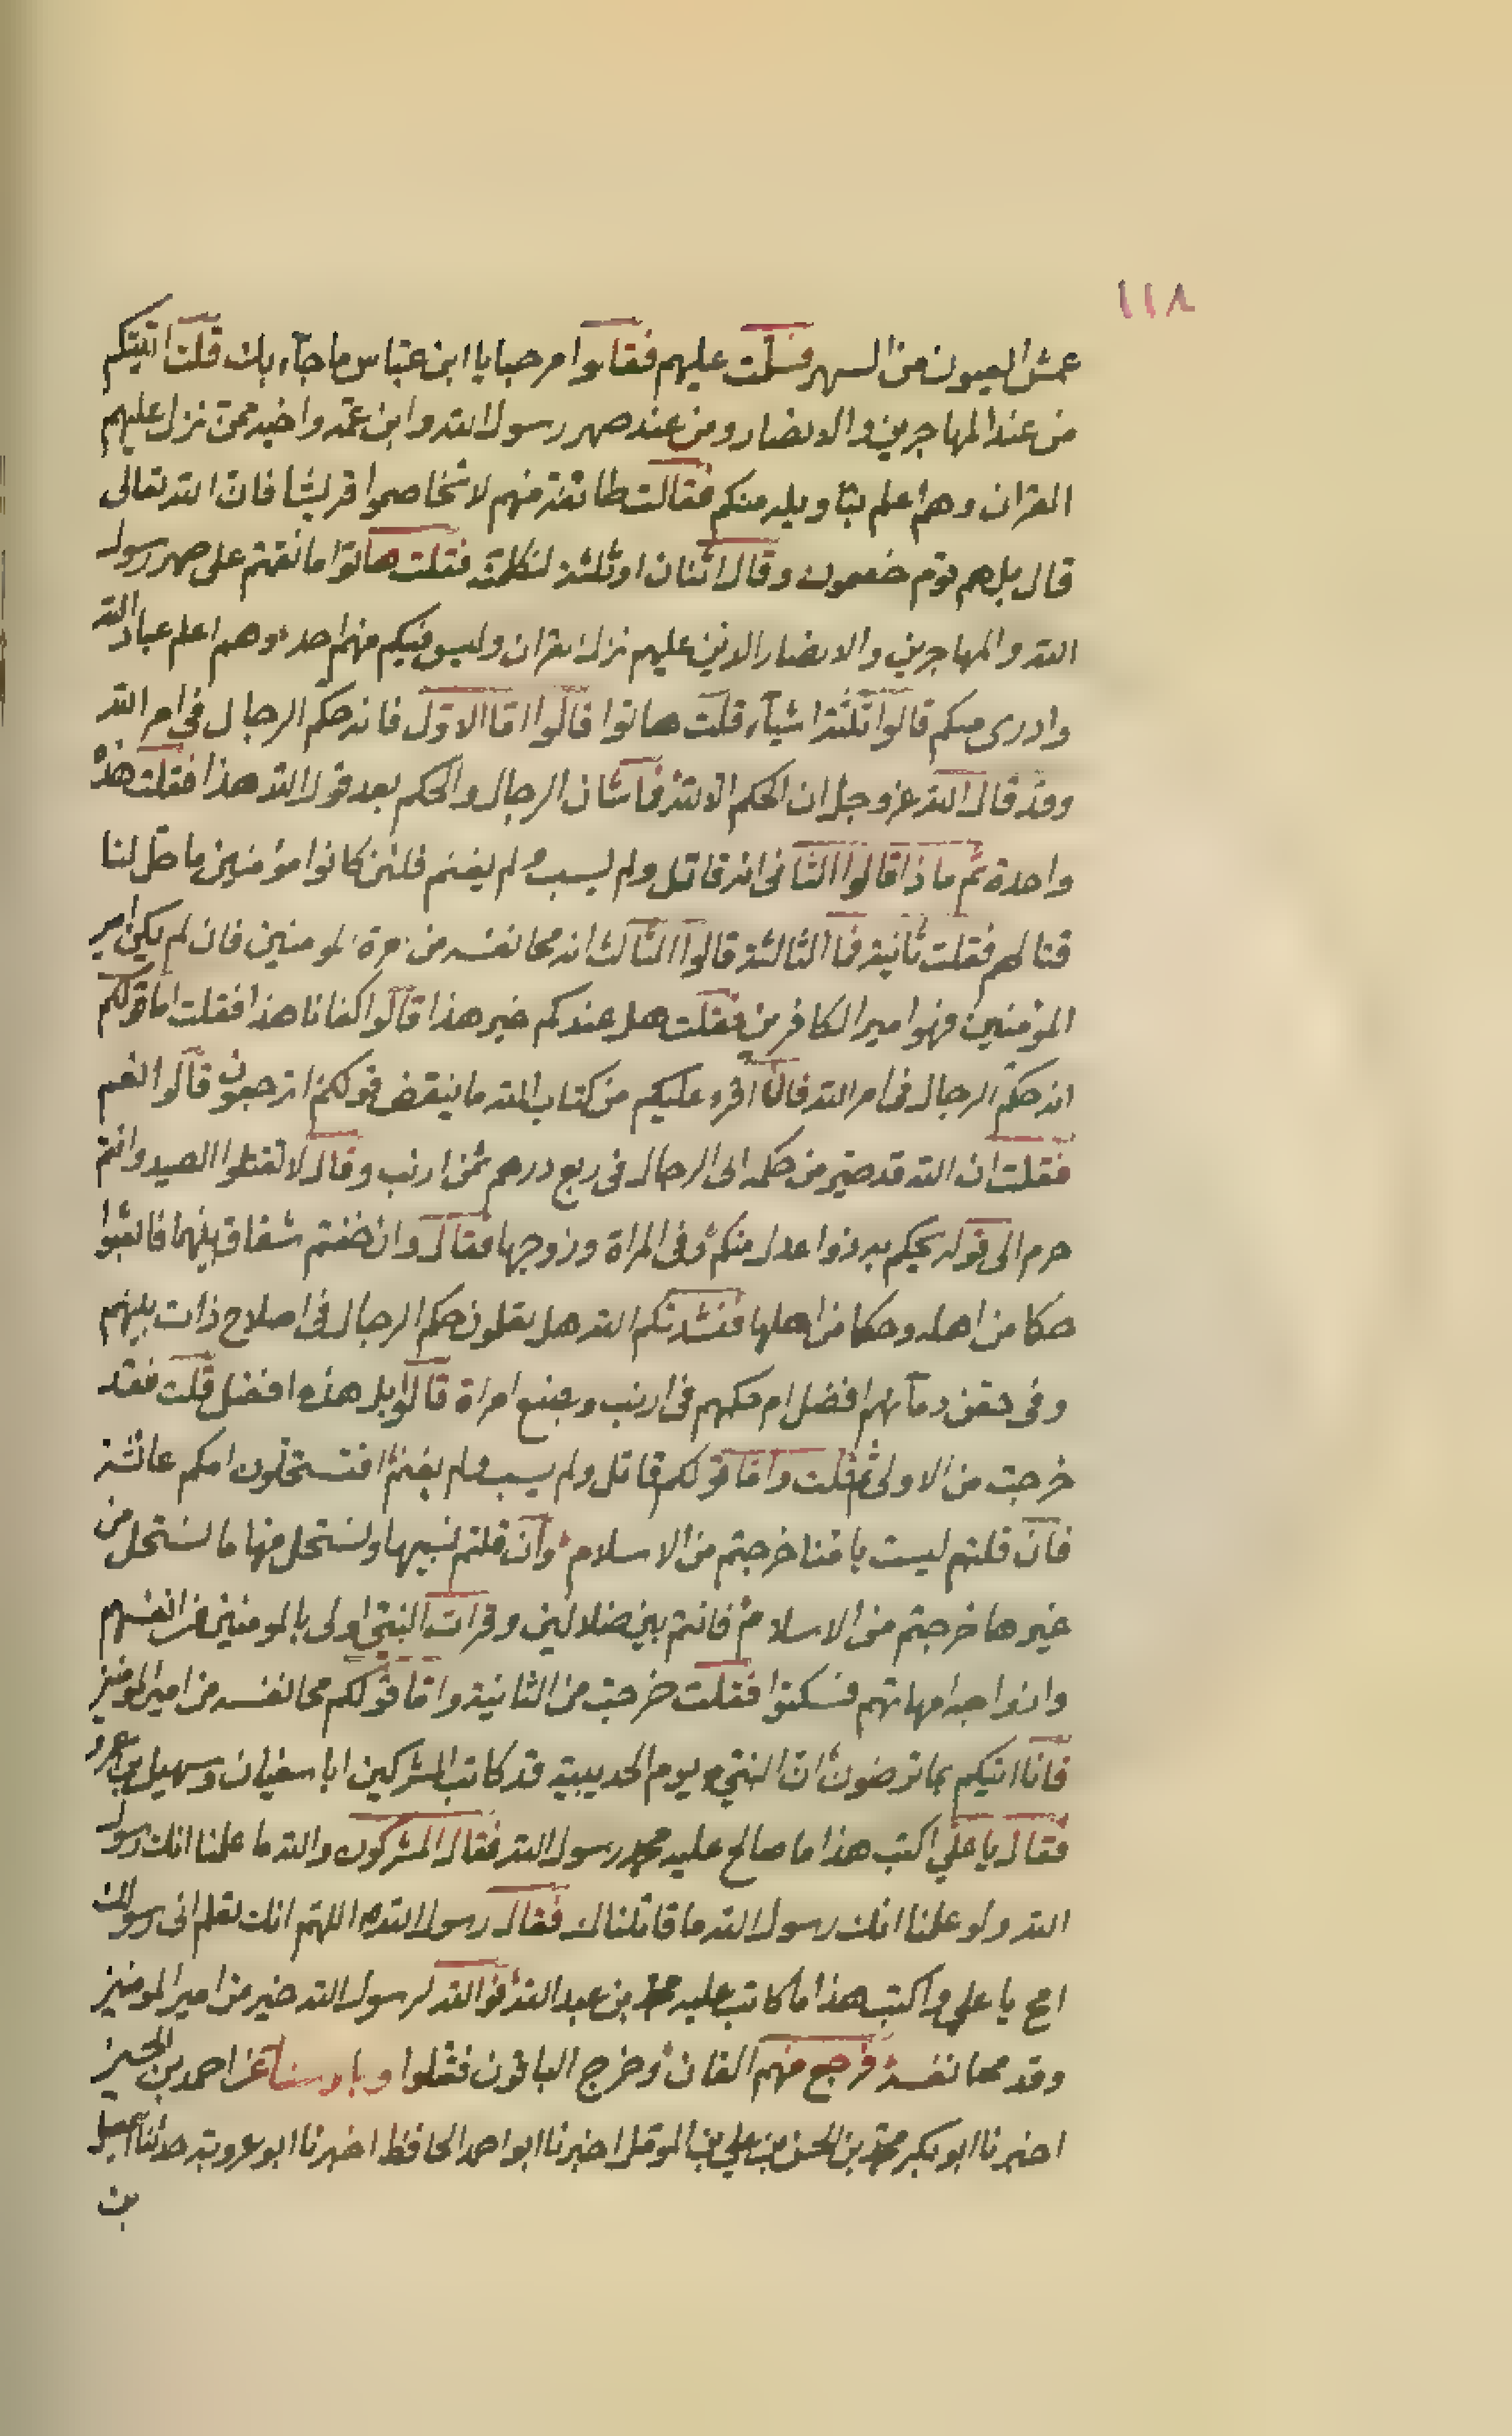 ١١٨
عمش العيون من السهر فسلمت عليهم فقالوا مرحبا يا ابن عباس ما جآء بك قلت اتيتكم
من عند المهاجرين والانصار ومن عند صهر رسول الله وابن عمه واخيه عمن نزل عليهم
القران وهم اعلم بتاويله منكم فقالت طائفة منهم لا تخاصموا قريشا فان الله تعالى
قال بل هم قوم خصمون وقال اثنان او ثلثة لنكلمنه فقلت هاتوا ما نقمتم على صهر رسول
الله والمهاجرين والانصار الذين عليهم نزل القران وليس فيكم منهم احد وهم اعلم عباد الله
وادرى منكم قالوا ثلثة اشيآء قلت هاتوا قالوا اما الاول فانه حكم الرجال في امر الله
وقد قال الله عز وجل ان الحكم الا لله فما شان الرجال والحكم بعد قول الله هذا فقلت هذه
واحدة ثم ماذا قالوا الثاني انه قاتل ولم يسب ولم يغنم فلئن كانوا مؤمنين ما حل لنا
قتالهم فقلت ثانية فما الثالثة قالوا الثالث انه محا نفسه من امرة المومنين فان لم يكن امير
المؤمنين فهو امير الكافرين فقلت هل عندكم غير هذا قالوا كفانا هذا فقلت اما قولكم
انه حكم الرجال في امر الله فانا اقرء عليكم من كتاب الله ما ينقض قولكم اترجعون قالوا نعم
فقلت ان الله قد صير من حكمه الى الرجال في ربع درهم ثمن ارنب وقال لا تقتلوا الصيد وانتم
حرم الى قوله يحكم به ذوا عدل منكم وفي المراة وزوجها فقال وان خفتم شقاق بينهما فابعثوا
حكما من اهله وحكما من اهلها فنشدتكم الله هل تعلمون حكم الرجال في اصلاح ذات بينهم
وفي حقن دمآئهم افضل ام حكمهم في ارنب وبضع امراة قالوا بل هذه افضل قلت فقد
خرجت من الاولى ثم قلت واما قولكم قاتل ولم يسب ولم يغنم افتستحلون امكم عائشة
فان قلتم ليست بامنا خرجتم من الاسلام وان قلتم نسبيها ونستحل منها ما نستحل من
غيرها خرجتم من الاسلام فانتم بين ضلالتين وقرات النبي اولى بالمومنين من انفسهم
وازواجه امهاتهم فسكتوا فقلت خرجت من الثانية واما قولكم محا نفسه من امير المومنين
فانا اتيكم بما ترضون ان النبي يوم الحديبية قد كاتب المشركين ابا سفيان وسهيل بن عمرو
فقال يا علي اكتب هذا ما صالح عليه محمد رسول الله فقال المشركون والله ما علمنا انك رسول
الله ولو علمنا انك رسول الله ما قاتلناك فقال رسول الله اللهم انك تعلم اني رسولك
امح يا علي واكتب هذا ما كاتب عليه محمد بن عبد الله فو الله لرسول الله خير من امير المومنين
وقد محا نفسه فرجع منهم الفان وخرج الباقون فقتلوا وباوسنا عن احمد بن الحسين
اخبرنا ابو بكر محمد بن الحسن بن علي بن المومل اخبرنا ابو احمد الحافظ اخبرنا ابو عروبة حدثنا
بن